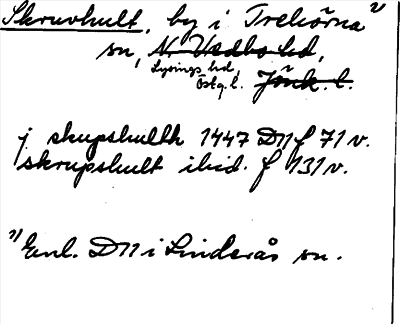 Skruvhult, by i Trehörna ¹⁾
sn, N. Vedbo hd,
Lysings hd,
Östg. l. Jönk. l.
j skupshulth 1447 D11 f 71 v.
skrupshult ibid. f 131 v.
¹⁾ Enl. D11 i Linderås sn.